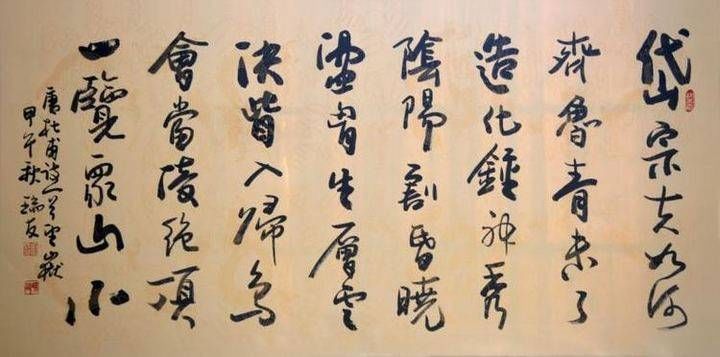 岱宗夫如何
齊魯青未了
造化鍾神秀
陰陽割昏曉
盪胷生層雲
決眥入歸鳥
會當陵絕頂
一覽眾山小
唐杜甫诗一首望嶽
甲午秋